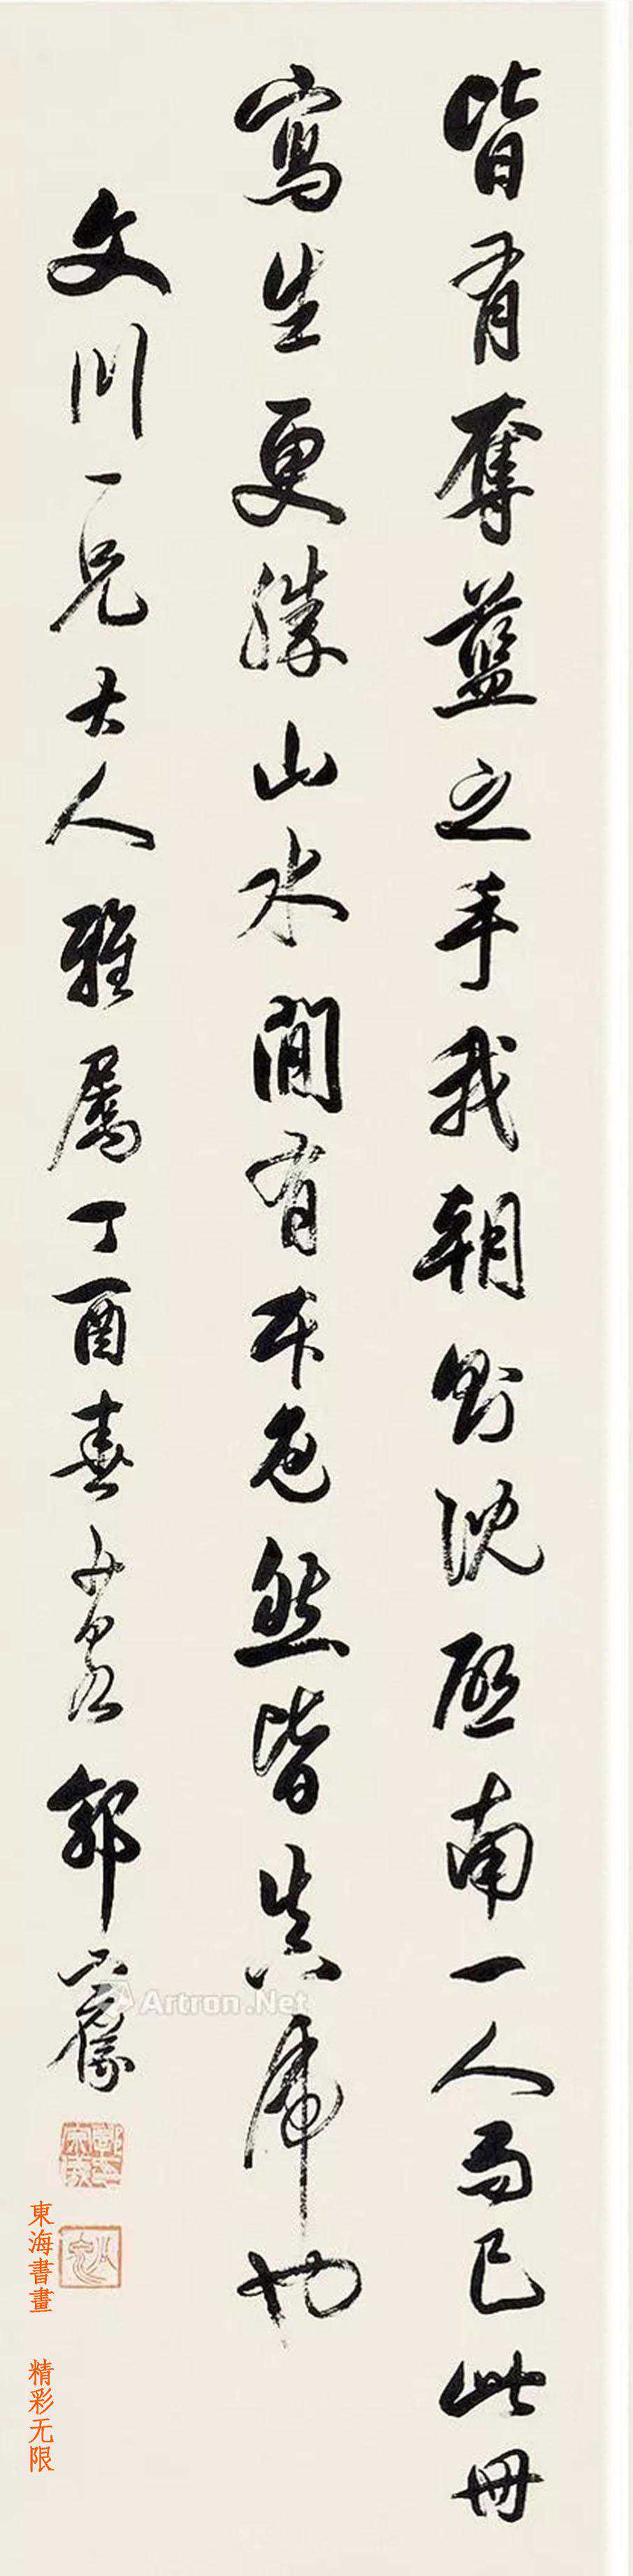 皆有奪藍之手我朝則沈啟南一人而已此冊
寫生更勝山水間有本色然皆真虎也
文川一兄大人雅屬丁酉春
郭
Artron.Net
東海書畫 精彩无限